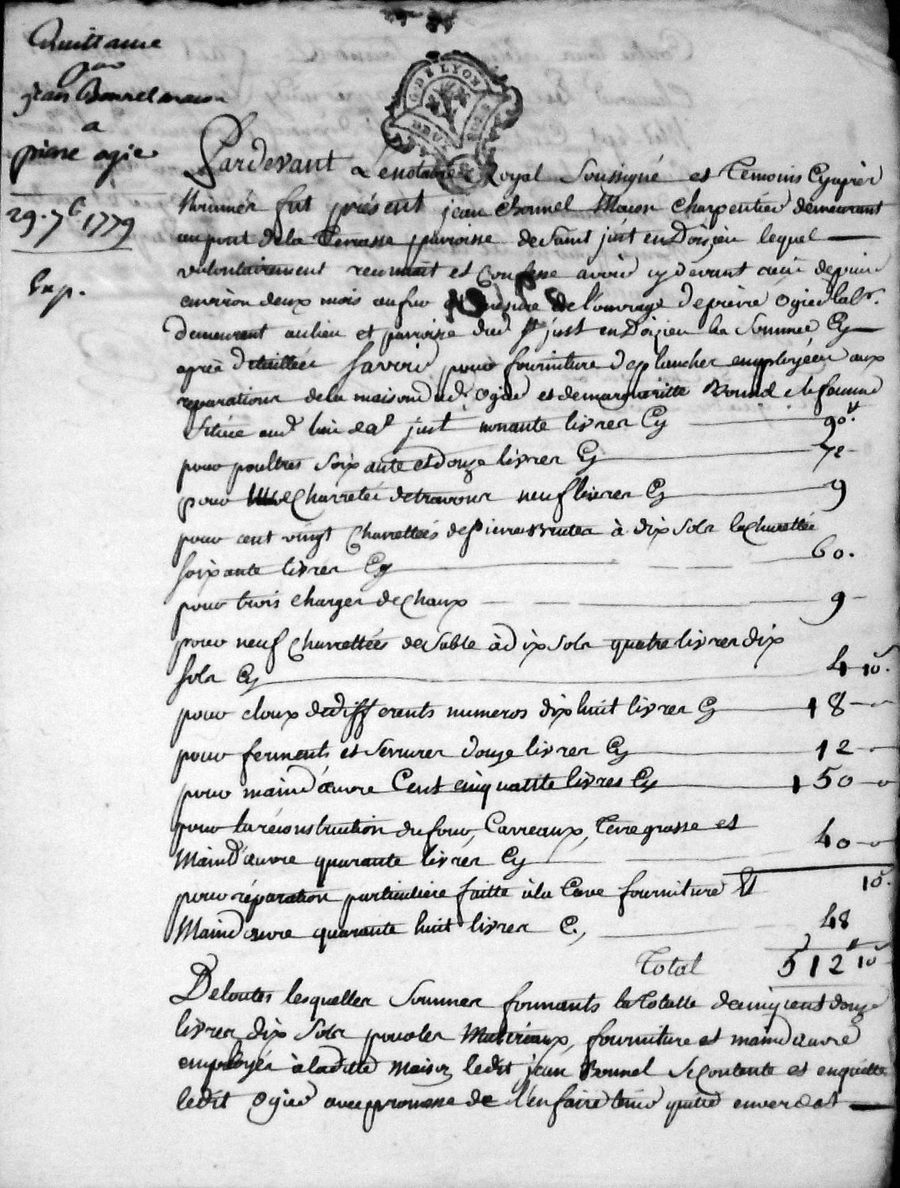 Quittance
par
jean Bonnel macon
a
pierre ogie
29. 7.e 1779
Exp.
G. DE LYON
DEUX SOLS
Pardevant Le notaire Royal Soussigné et Temoins Cyaprès
Nommés fut présent jean Bonnel Macon Charpentier demeurant
au pont de la Terrasse paroisse de Saint just en Doizieu lequel
volontairement reconnait et Confesse avoir cy devant recu depuis
environ deux mois au fur et mesure de l'ouvrage de pierre Ogier labr.
demeurant au lieu et paroisse dud. St just en Doizieu la Somme Cy
après détaillée Savoir pour fourniture de plancher employées aux
réparations de la maison dud. Ogier et de margueritte Bonnel sa femme
Située aud. lieu de St just nonante livres Cy 90.tt
pour poultres Soixante et douze livres Cy 72
pour Charretée de travons neuf livres Cy 9
pour cent vingt Charrettées de pierre brutes à dix Sols la Charettée
Soixante livres Cy 60.
pour trois charges de Chaux 9
pour neuf Charrettées de Sable à Dix Sols quatre livres dix
Sols Cy 4 10s.
pour cloux de différents numeros dix huit livres Cy 18
pour ferments et Serrures douze livres Cy 12
pour main d'œuvre Cent cinquante livres Cy 150
pour la réconstruction du four, Carreaux, Terre grasse et
Main D'œuvre quarante livres Cy 40
10s.
pour réparation particulière faitte à la Cave fourniture Et
Main d'œuvre quarante huit livres C., 48
Total 512tt 10s
De toutes lesquelles Sommes formants la Totalle de cinq cent douze
livres dix Sols pour les Matéreaux, fourniture et main d'œuvre
employés à laditte maison ledit jean Bonnel Se contente et en quitte
ledit Ogier avec promesse de l'en faire tenir quitte envers et